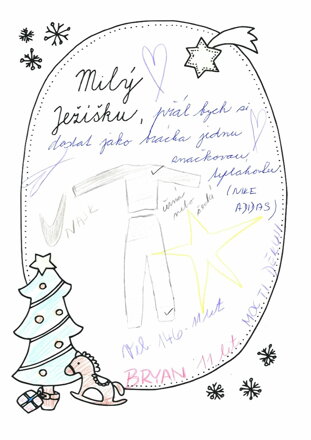 Milý
Ježíšku, přál bych si
dostat jako dárka jednu
značkovou
teplákovku
(NIKE
ADIDAS)
NAIK
černá
nebo
šedá
MOC TI DĚKUJI
Vel 146-11 let
BRYAN 11 let